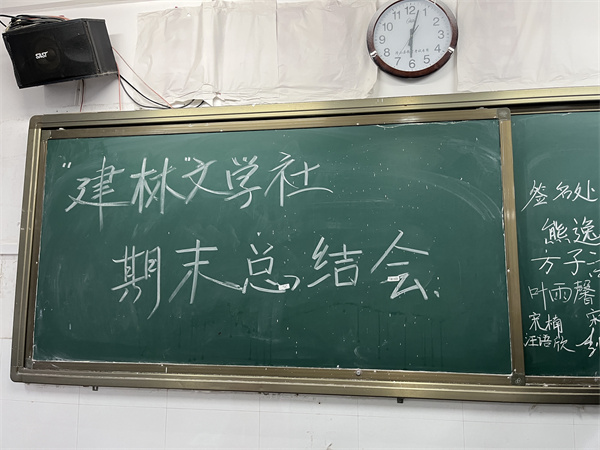 "建林"文学社
期末总结会
签名处
熊逸
方子
叶雨馨
宋楠 宋
汪语欣
12
1
2
3
4
5
6
7
8
9
10
11